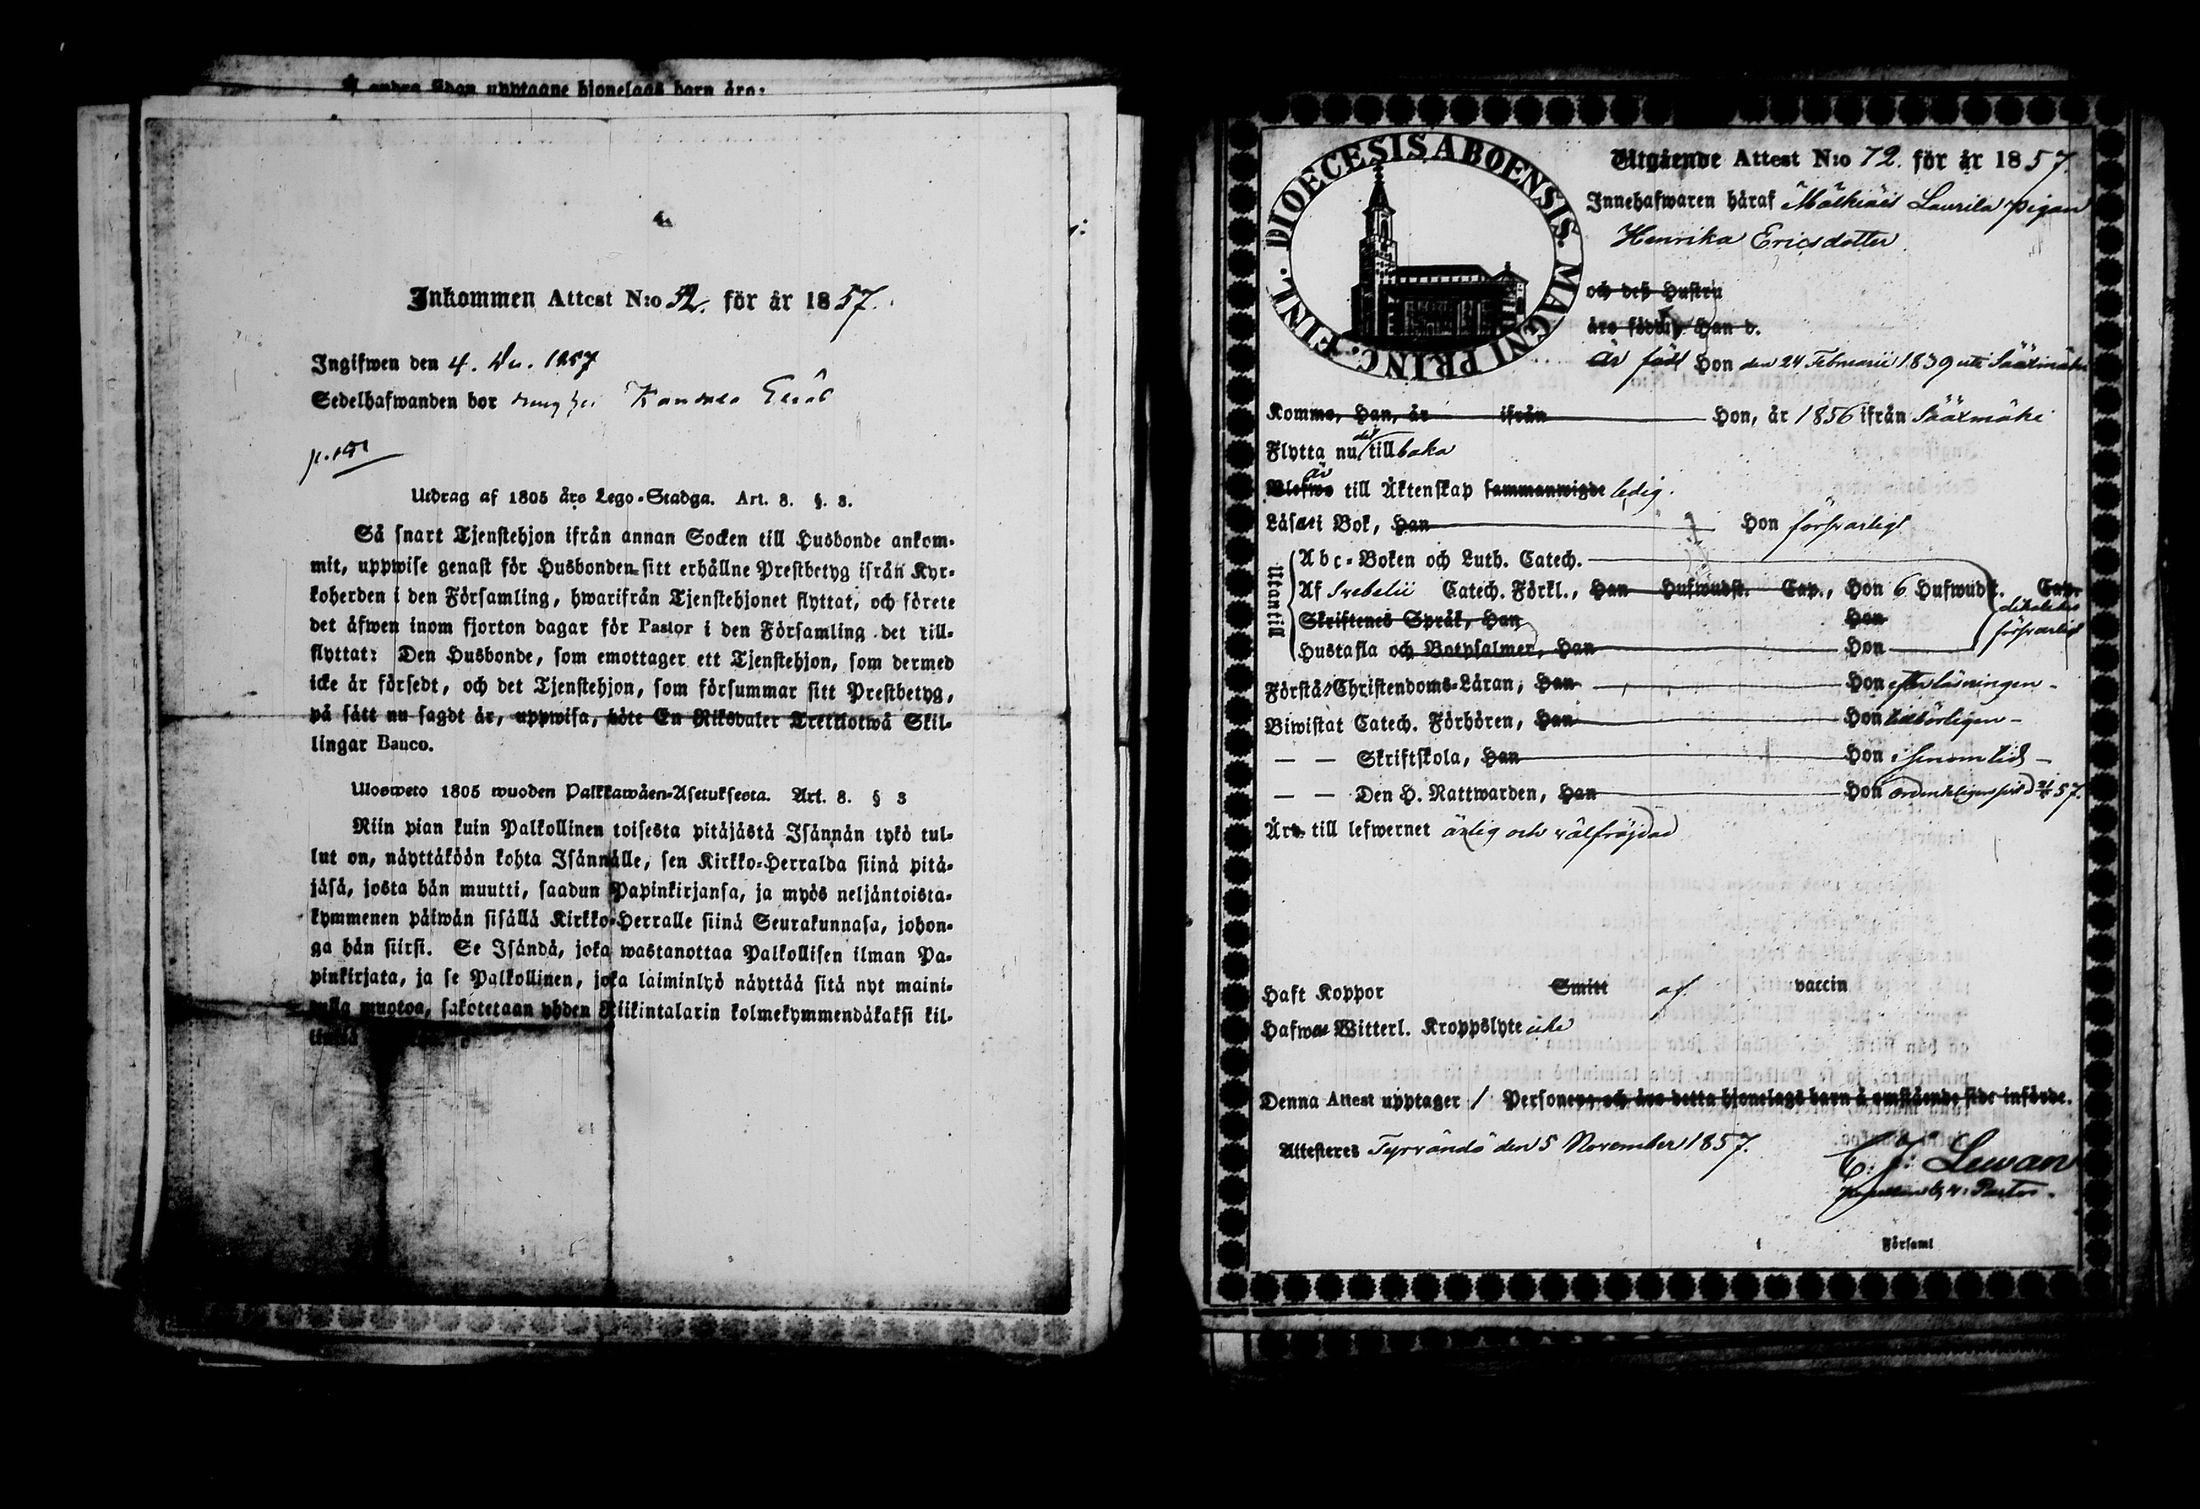 andra Sidan upptagne hjonelags barn äro:
Inkommen Attest N:o för år 1857.
Ingifwen den 4. Dec. 1857
Sedelhafwanden bor
Utdrag af 1805 års Lego-Stadga. Art. 8. §. 3.
Så snart Tjenstehjon ifrån annan Socken till Husbonde ankom-
mit, uppwise genast för Husbonden sitt erhållne Prestbetyg ifrån Kyr-
koherden i den Församling, hwarifrån Tjenstehjonet flyttat, och förete
det äfwen inom fjorton dagar för Pastor i den Församling det till-
flyttat: Den Husbonde, som emottager ett Tjenstehjon, som dermed
icke är försedt, och det Tjenstehjon, som försummar sitt Prestbetyg,
på sätt nu sagdt är, uppwisa, böte En Riksdaler Trettiotwå Skil-
lingar Banco.
Ulosweto 1805 wuoden Palkkawäen-Asetuksesta. Art. 8. § 3
Niin pian kuin Palkollinen toisesta pitäjästä Isännän tykö tul-
lut on, näyttäköön kohta Isännälle, sen Kirkko-Herralda siinä pitä-
jäsä, josta hän muutti, saadun Papinkirjansa, ja myös neljäntoista-
kymmenen päiwän sisällä Kirkko-Herralle siinä Seurakunnasa, johon-
ga hän siirsi. Se Isändä, joka wastanottaa Palkollisen ilman Pa-
pinkirjata, ja se Palkollinen, joka laiminlyö näyttää sitä nyt maini-
tulla muotoa, sakotetaan yhden Riikintalarin kolmekymmendäkaksi kil-
DIOECESIS ABOENSIS. MAGNI PRINC. FINL.
Utgående Attest N:o 72. för år 1857.
Innehafwaren häraf Mälkiäis Laurila pigan
Henrika Ericsdotter
och deß Hustru
äro födde, Han d.
är född Hon den 24 Februarii 1839 uti Sääxmäki
Komme, Han, år ifrån Hon, år 1856 ifrån Sääxmäki
Flytta nu dit tillbaka
Blefwo är till Äktenskap sammanwigde ledig.
Läsa i Bok, Han Hon förswarligt
Utantill
Abc-Boken och Luth. Catech.
Af Svebelii Catech. Förkl., Han Hufwudst. Cap., Hon 6 Hufwudst. Cap.
Skriftenes Språk, Han Hon förswarligt
Hustafla och Botpsalmer, Han Hon
Förstå Christendoms-Läran, Han Hon efter läsningen
Biwistat Catech. Förhören, Han Hon behörigen
— — Skriftskola, Han Hon i sinom tid
— — Den H. Nattwarden, Han Hon ordenteligen 57.
Äro till lefwernet ärlig och wälfräjdad
Haft Koppor Smitt af vaccin
Hafwa Witterl. Kroppslyte icke
Denna Attest upptager 1 Personer och äro detta hjonelags barn å omstående side införde.
Attesteres Tyrvändö den 5 November 1857.
C. J. Lewan
Pastor.
Församl